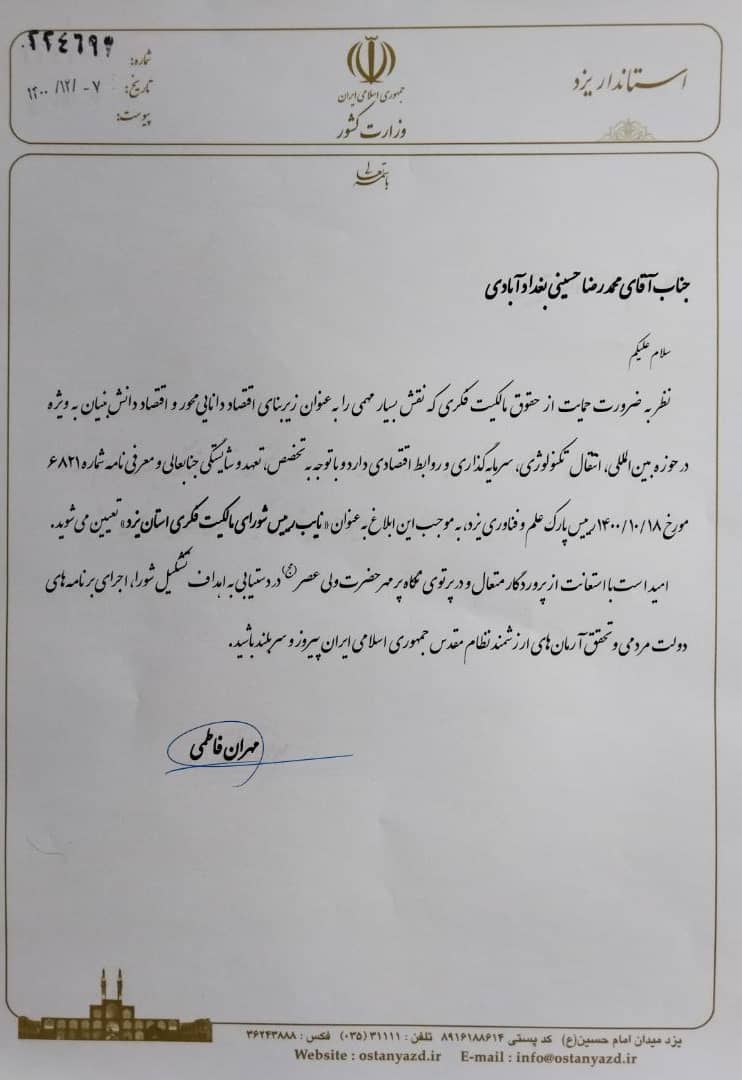 استاندار یزد
جمهوری اسلامی ایران
وزارت کشور
شماره: ۲۲۴۶۹۳
تاریخ: ۱۴۰۰/۱۲/-۷
پیوست:
باسمه تعالی
جناب آقای محمدرضا حسینی بغدادآبادی
سلام علیکم
نظر به ضرورت حمایت از حقوق مالکیت فکری که نقش بسیار مهمی را به عنوان زیربنای اقتصاد دانایی محور و اقتصاد دانش بنیان به ویژه
در حوزه بین المللی، انتقال تکنولوژی، سرمایه گذاری و روابط اقتصادی دارد و با توجه به تخصص، تعهد و شایستگی جنابعالی و معرفی نامه شماره ۶۸۲۱
مورخ ۱۴۰۰/۱۰/۱۸ رییس پارک علم و فناوری یزد، به موجب این ابلاغ به عنوان «نایب رییس شورای مالکیت فکری استان یزد» تعیین می شوید.
امید است با استعانت از پروردگار متعال و در پرتوی نگاه پر مهر حضرت ولی عصر(عج) در دستیابی به اهداف تشکیل شورا، اجرای برنامه های
دولت مردمی و تحقق آرمان های ارزشمند نظام مقدس جمهوری اسلامی ایران پیروز و سربلند باشید.
مهران فاطمی
یزد میدان امام حسین(ع) کد پستی ۸۹۱۶۱۸۸۶۱۴ تلفن : ۳۱۱۱۱ (۰۳۵) فکس : ۳۶۲۴۳۸۸۸
Website : ostanyazd.ir E-mail : info@ostanyazd.ir